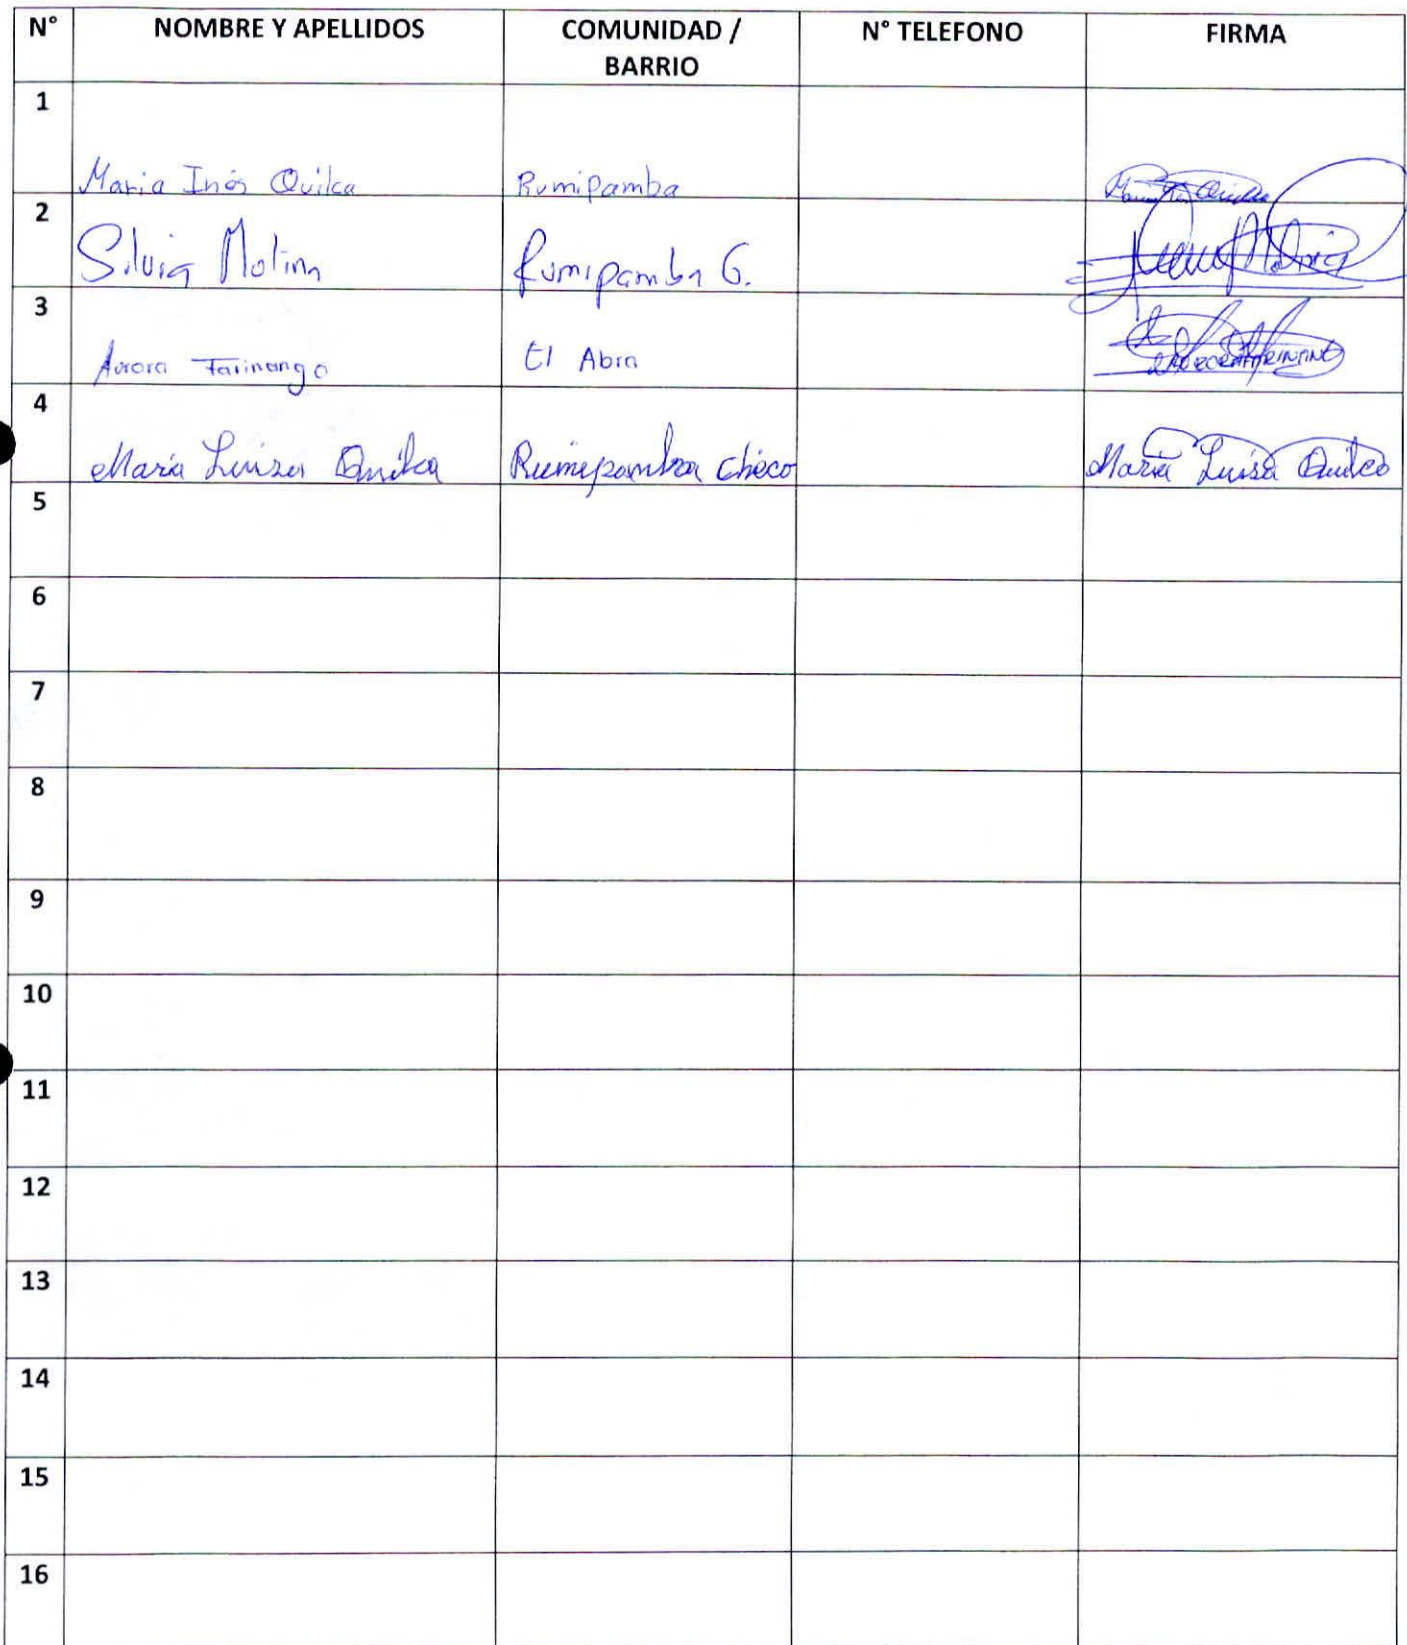 N° NOMBRE Y APELLIDOS COMUNIDAD / BARRIO N° TELEFONO FIRMA
1 Maria Inés Quilca Rumipamba
2 Silvia Molina Rumipamba G.
3 Aurora Farinango El Abra
4 María Luiza Quilca Rumipamba chico María Luisa Quilco
5
6
7
8
9
10
11
12
13
14
15
16